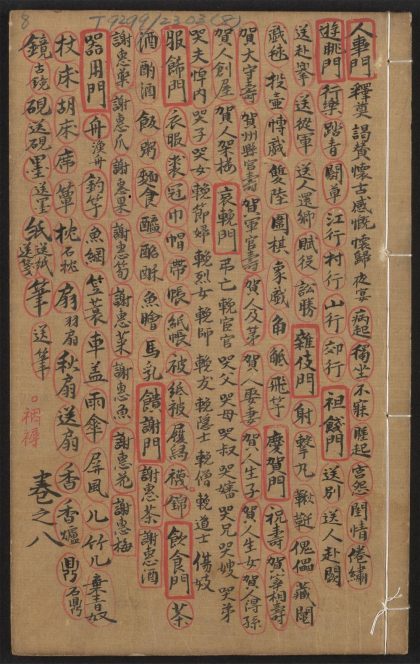 8
T9299/2303(8)
人事門 釋奠 謁賛 懷古 感慨 懷歸 夜宴 病起 獨坐 不寐 睡起 宮怨 閨情 倦繡
遊眺門 行樂 踏青 鬪草 江行 村行 山行 郊行 祖餞門 送別 送人赴闕
送赴舉 送從軍 送人還鄉 賦役 訟勝 雜伎門 射 擊丸 鞦韆 傀儡 藏鬮
戲毬 投壺 博戲 雙陸 圍棋 象戲 角觝 飛竿 慶賀門 祝壽 賀宰相壽
賀太守壽 賀州縣官壽 賀軍官壽 賀人及第 賀人娶妻 賀人生子 賀人生女 賀人得孫
賀人創屋 賀人架樓 哀輓門 弔亡 輓宦官 哭父 哭母 哭叔 哭嬸 哭兄 哭嫂 哭弟
哭夫 悼內 哭子 哭女 輓節婦 輓烈女 輓師 輓友 輓隱士 輓僧 輓道士 傷妓
服飾門 衣服 裘 冠 巾 帽 帶 帳 紙帳 被 紙被 履 襪 錦 飲食門 茶
酒 酎酒 飯 粥 麵食 醯 酪酥 魚鱠 馬乳 饋謝門 謝惠茶 謝惠酒
謝惠藥 謝惠瓜 謝惠果 謝惠筍 謝惠菜 謝惠魚 謝惠花 謝惠梅
器用門 舟 漁舟 釣竿 魚網 笠 蓑 車 蓋 雨傘 屏風 几 竹几 棄青奴
杖 床 胡床 席 簟 枕 石枕 扇 羽扇 秋扇 送扇 香 香爐 鼎 石鼎
鏡 古鏡 硯 送硯 墨 送墨 紙 送紙 筆 送筆
卷之八